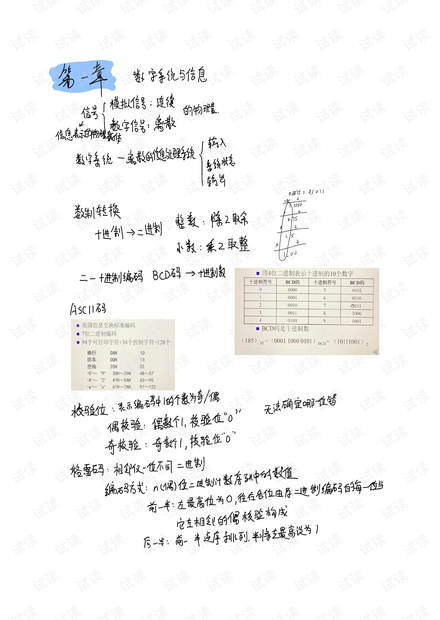 第一章 数字系统与信息
信号 模拟信号：连续 的物理量
数字信号：离散
信息表示的物理
数字系统 — 离散的信息处理系统 输入
系统状态
输出
数制转换
十进制→二进制 整数：除2取余
小数：乘2取整
二—十进制编码 BCD码 → 十进制数
用4位二进制表示十进制的10个数字
十进制符号 BCD码 十进制符号 BCD码
0 0000 5 0101
1 0001 6 0110
2 0010 7 0111
3 0011 8 1000
4 0100 9 1001
BCD码是十进制数
(185)10 = (0001 1000 0101)BCD = (10111001)2
ASCII码
美国信息交换标准编码
7位二进制编码
94个可打印字符+34个控制字符=128个
换行 0AH 10
回车 0DH 13
空格 20H 32
'0'~'9' 30H~39H 48~57
'A'~'Z' 41H~5AH 65~90
'a'~'z' 61H~7AH 97~122
校验位：表示编码中1的个数为奇/偶
偶校验：偶数个1，校验位"0" 无法确定哪位错
奇校验：奇数个1，校验位"0"
格雷码：相邻仅一位不同 二进制
编码方式：n(偶)位二进制计数序列中的数值
前一半：左最高位为0，往右各位由原二进制编码的每一位与
它左相邻的偶校验构成
后一半：前一半逆序排列，半将左最高设为1